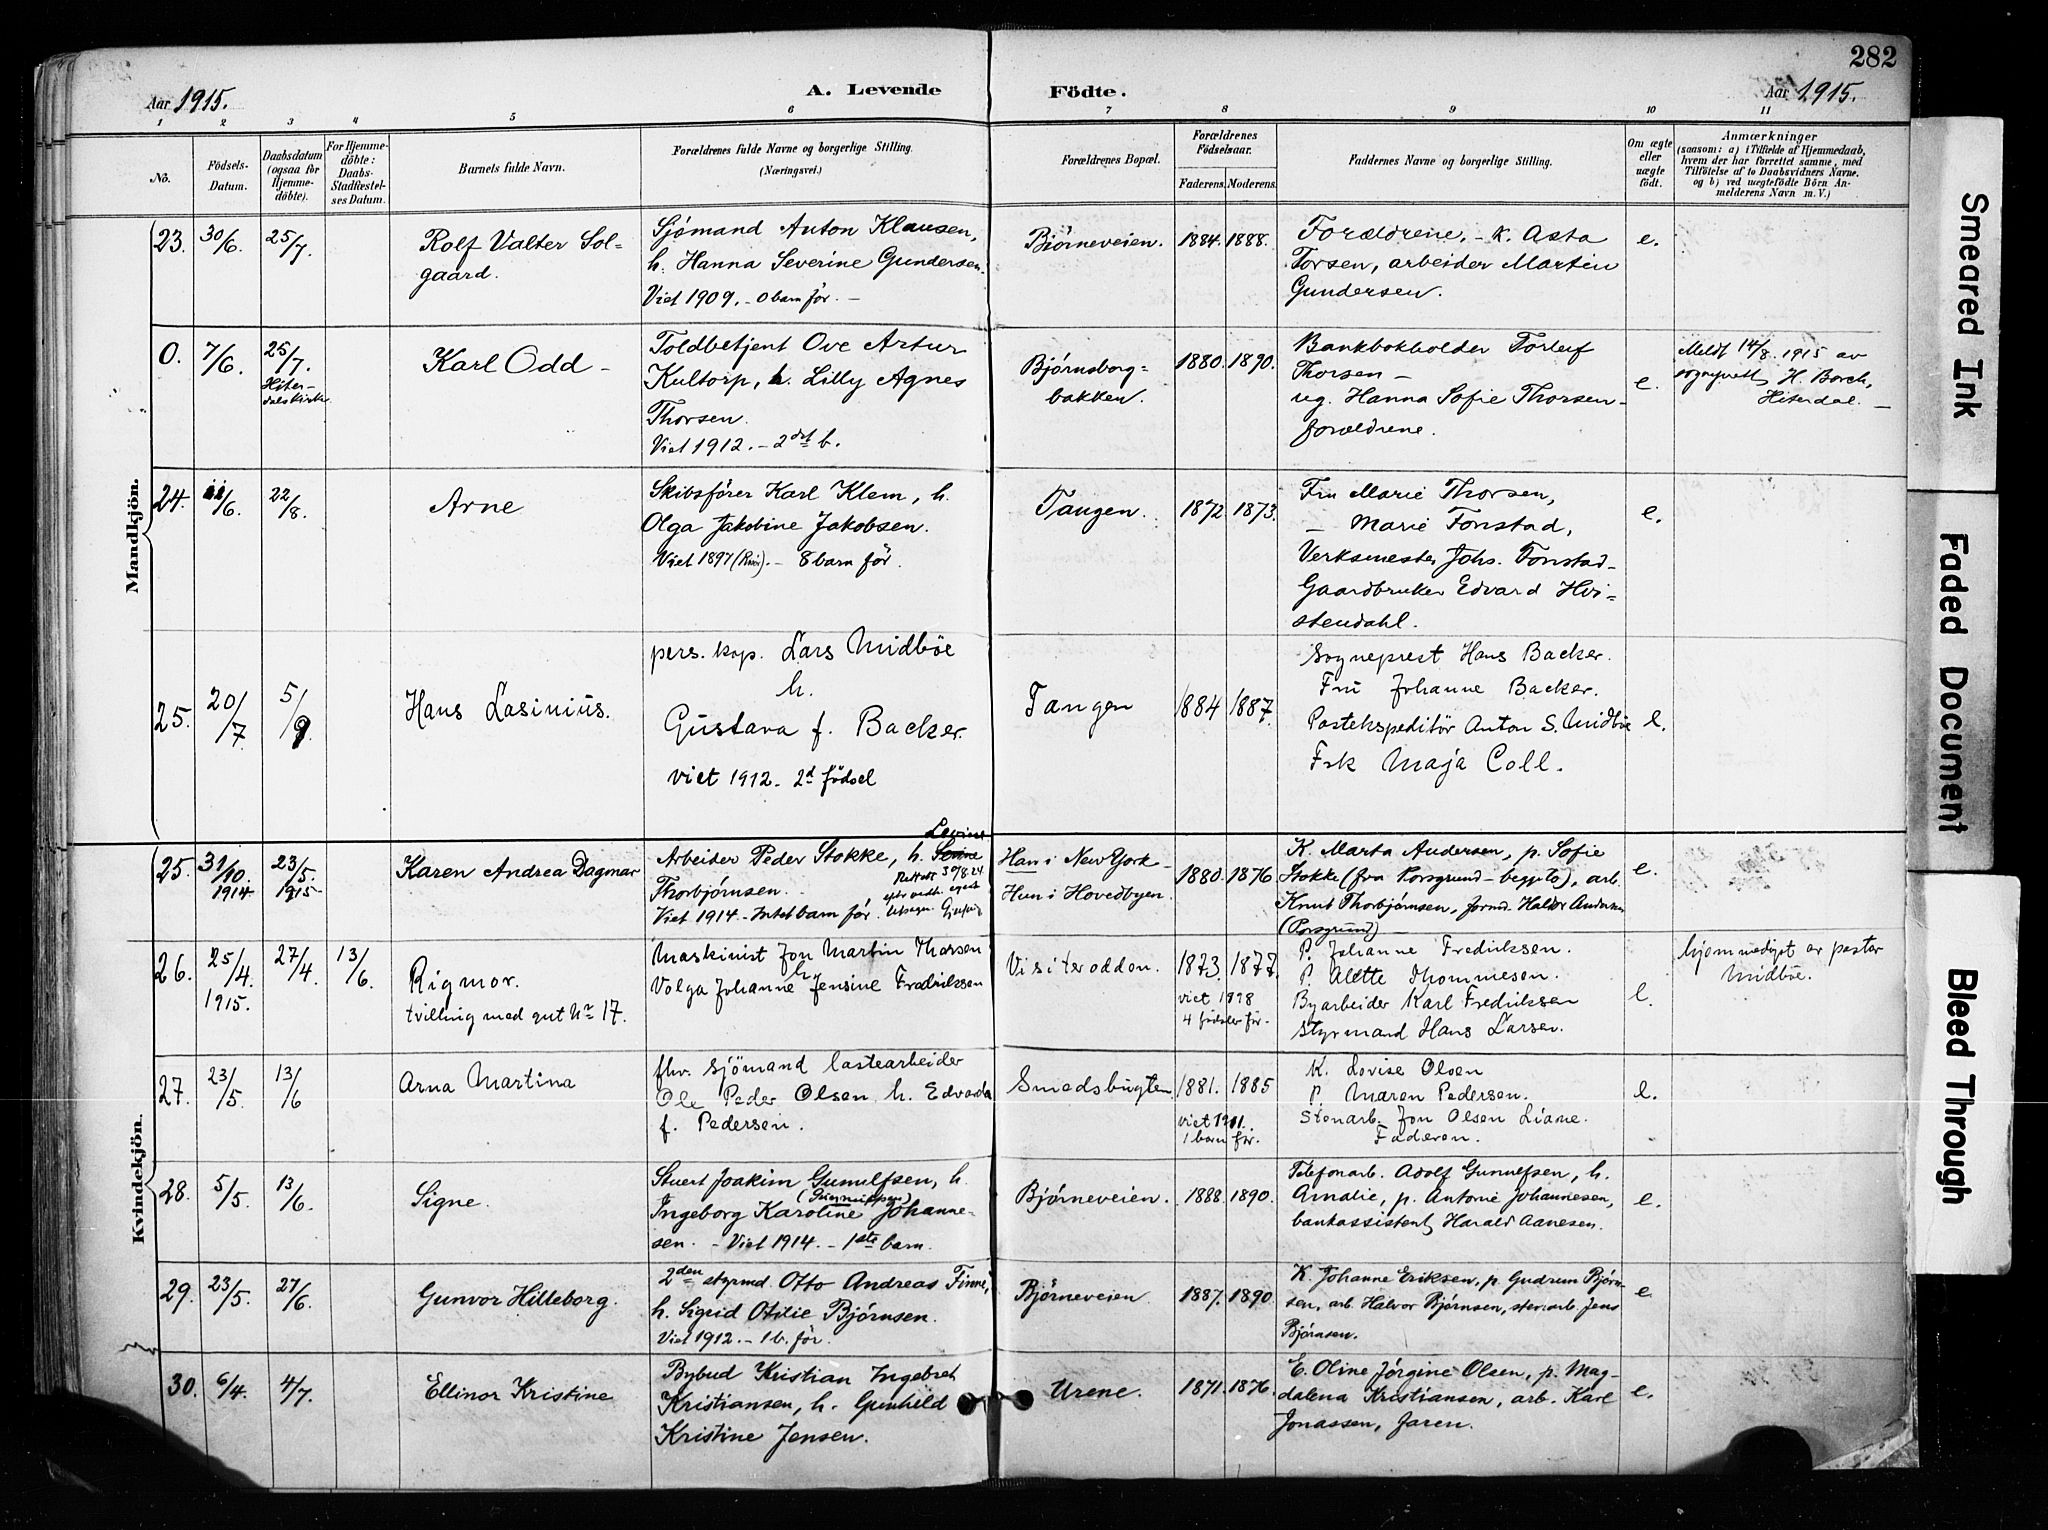 282
Aar 1915.
A. Levende Födte.
Aar 1915.
1 2 3 4 5 6 7 8 9 10 11
No.
Födsels-
Datum.
Daabsdatum
(ogsaa for
Hjemme-
döbte).
For Hjemme-
döbte:
Daabs-
Stadfæstel-
ses Datum.
Barnets fulde Navn.
Forældrenes fulde Navne og borgerlige Stilling.
(Næringsvei.)
Forældrenes Bopæl.
Forældrenes
Födselsaar.
Faderens. Moderens.
Faddernes Navne og borgerlige Stilling.
Om ægte
eller
uægte
födt.
Anmærkninger
(saasom: a) i Tilfælde af Hjemmedaab,
hvem der har forrettet samme, med
Tilföielse af to Daabsvidners Navne.
og b) ved uægtefödte Börn An-
melderens Navn m. V.)
Mandkjön.
23. 30/6. 25/7.
Rolf Valter Sol-
gaard.
Sjømand Anton Klausen,
h. Hanna Severine Gundersen.
Viet 1909. - 0 barn før. -
Bjørneveien. 1884. 1888.
Forældrene. - K. Asta
Torsen, arbeider Martin
Gundersen.
e.
0. 7/6. 25/7.
Hiter-
dals kirke
Karl Odd -
Toldbetjent Ove Artur
Kultorp, h. Lilly Agnes
Thorsen.
Viet 1912. - 2det b.
Bjørnsborg-
bakken.
1880. 1890.
Bankbokholder Torleif
Thorsen -
ug. Hanna Sofie Thorsen -
forældrene.
e.
Meldt 14/8. 1915 av
H. Borch,
Hiterdal. -
24. 11/6. 22/8.
Arne
Skibsfører Karl Klem, h.
Olga Jakobine Jakobsen.
Viet 1897 - 8 barn før.
Tangen. 1872. 1873.
Fru Marie Thorsen,
- Marie Fonstad,
Verksmester Johs. Fonstad -
Gaardbruker Edvard Hvi-
stendahl.
e.
25. 20/7 5/9.
Hans Lasinius.
pers. kap. Lars Midböe
h.
Gustava f. Backer.
viet 1912. 2d födsel
Tangen 1884 1887.
Sogneprest Hans Backer.
Fru Johanne Backer.
Postekspeditör Anton S. Midböe
Frk Maja Coll.
e.
Kvindekjön.
25. 31/10. 1914 23/5. 1915
Karen Andrea Dagmar
Arbeider Peder Stokke, h. Lovise
Thorbjørnsen. Rettet 30/8.24
Viet 1914 - Intet barn før.
Han i New York -
Hun i Hovedbyen.
1880. 1876
K. Marta Andersen, p. Sofie
Stokke (fra Porsgrund - begge to), arb.
Knut Thorbjørnsen, formd. Halvor Andersen
(Porsgrund) -
e.
26. 25/4. 1915. 27/4. 13/6.
Rigmor.
tvilling med gut Nr 17.
Maskinist Jon Martin Thorsen
h.
Volga Johanne Jensine Fredriksen
Visiterodden. 1873 1877.
viet 1898
4 födsler för.
P. Johanne Fredriksen.
P. Alette Thommesen.
Byarbeider Karl Fredriksen
Styrmand Hans Larsen.
e.
hjemmedöpt av pastor
Midböe.
27. 23/5. 13/6
Arna Martina
fhv. sjömand lastearbeider
Ole Peder Olsen h. Edvarda
f. Pedersen.
Smedsbugten 1881. 1885
viet 1911.
1 barn för.
K. Lovise Olsen
P. Maren Pedersen.
Stenarb. Jon Olsen Liane.
Faderen.
e.
28. 5/5. 13/6.
Signe.
Stuert Joakim Gunulfsen, h.
Ingeborg Karoline Johanne-
sen. - Viet 1914. - 1ste barn.
Bjørneveien. 1888. 1890.
Telefonarb. Adolf Gunulfsen, h.
Amalie, p. Antonie Johannesen,
bankassistent Harald Aanesen.
e.
29. 23/5. 27/6.
Gunvor Hilleborg.
2den styrmd. Otto Andreas Finne,
h. Sigrid Otilie Bjørnsen.
Viet 1912. - 1 b. før.
Bjørneveien 1887. 1890.
K. Johanne Eriksen, p. Gudrun Bjørn-
sen, arb. Halvor Bjørnsen, stenarb. Jens
Bjørnsen.
e
30. 6/4. 4/7.
Ellinor Kristine
Bybud Kristian Ingebret
Kristiansen, h. Gunhild
Kristine Jensen.
Urene. 1871. 1876.
E. Oline Jørgine Olsen, p. Mag-
dalena Kristiansen, arb. Karl
Jonassen, faren.
e.
Smeared Ink
Faded Document
Bleed Through